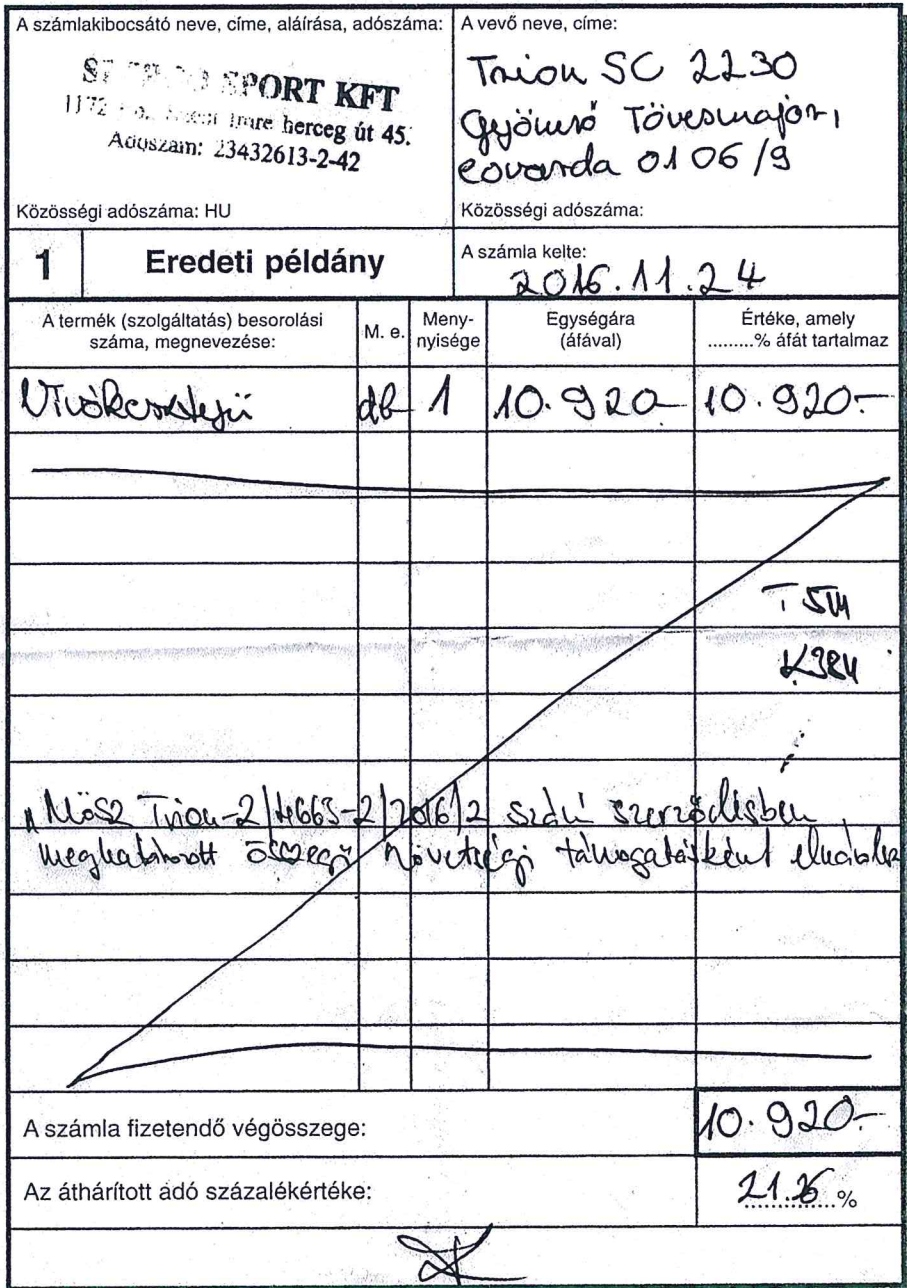 A számlakibocsátó neve, címe, aláírása, adószáma:
SPORT KFT
1172 Imre herceg út 45.
Adószám: 23432613-2-42
Közösségi adószáma: HU
A vevő neve, címe:
Trion SC 2230
Gyömrő Tövesmajor,
Lovarda 0106/9
Közösségi adószáma:
1 Eredeti példány
A számla kelte:
2016.11.24
A termék (szolgáltatás) besorolási
száma, megnevezése:
M. e.
Meny-
nyisége
Egységára
(áfával)
Értéke, amely
.........% áfát tartalmaz
db 1 10.920- 10.920.-
T 511
K384
"MÖSZ Trion-2/4663-2/2016/2 számú szerződésben
meghatározott összegű szövetségi támogatásként
A számla fizetendő végösszege: 10.920.-
Az áthárított adó százalékértéke: 21.26 %